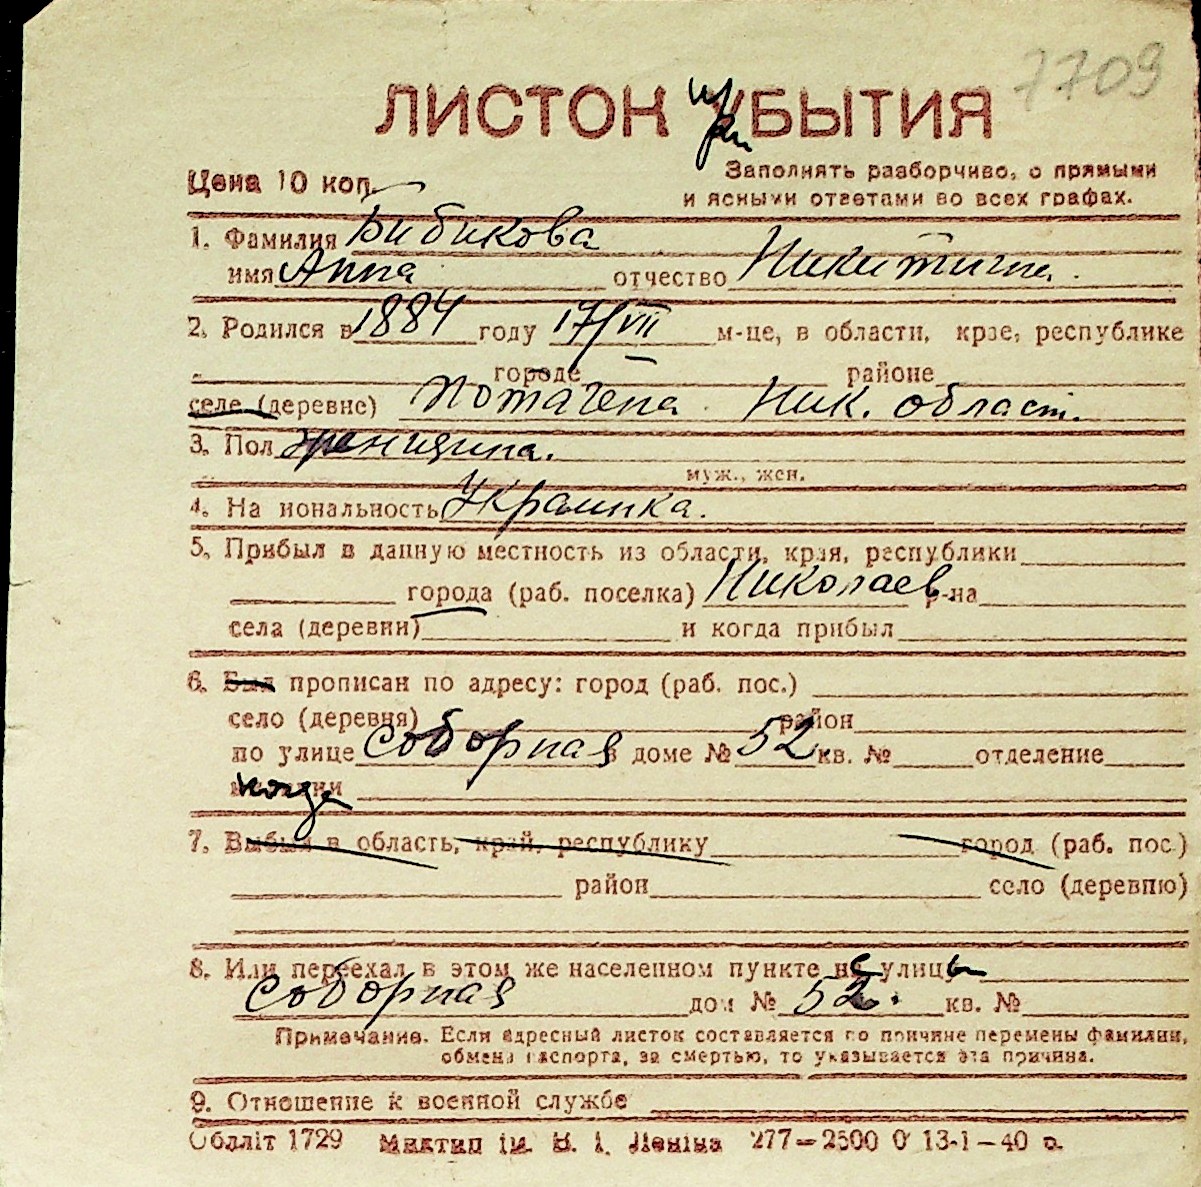 7709
ЛИСТОК при УБЫТИЯ
Цена 10 коп.
Заполнять разборчиво, с прямыми
и ясными ответами во всех графах.
1. Фамилия Бибикова
имя Анна отчество Никитична.
2. Родился в 1884 году 17/VII м-це, в области, крае, республике
городе районе
селе (деревне) Ник. област.
3. Пол женщина.
муж., жен.
4. Национальность Украинка.
5. Прибыл в данную местность из области, края, республики
города (раб. поселка) Николаев р-на
села (деревни) и когда прибыл
6. Был прописан по адресу: город (раб. пос.)
село (деревня) район
по улице Соборная в доме № 52 кв. № отделение
милиции
7. Выбыл в область, край, республику город (раб. пос.)
район село (деревню)
8. Или переехал в этом же населенном пункте с улицы
Соборная дом № 52. кв. №
Примечание. Если адресный листок составляется по причине перемены фамилии,
обмена паспорта, за смертью, то указывается эта причина.
9. Отношение к военной службе
Обллiт 1729 Миктип iм. В. І. Ленiна 277—2500 0 13-1—40 р.